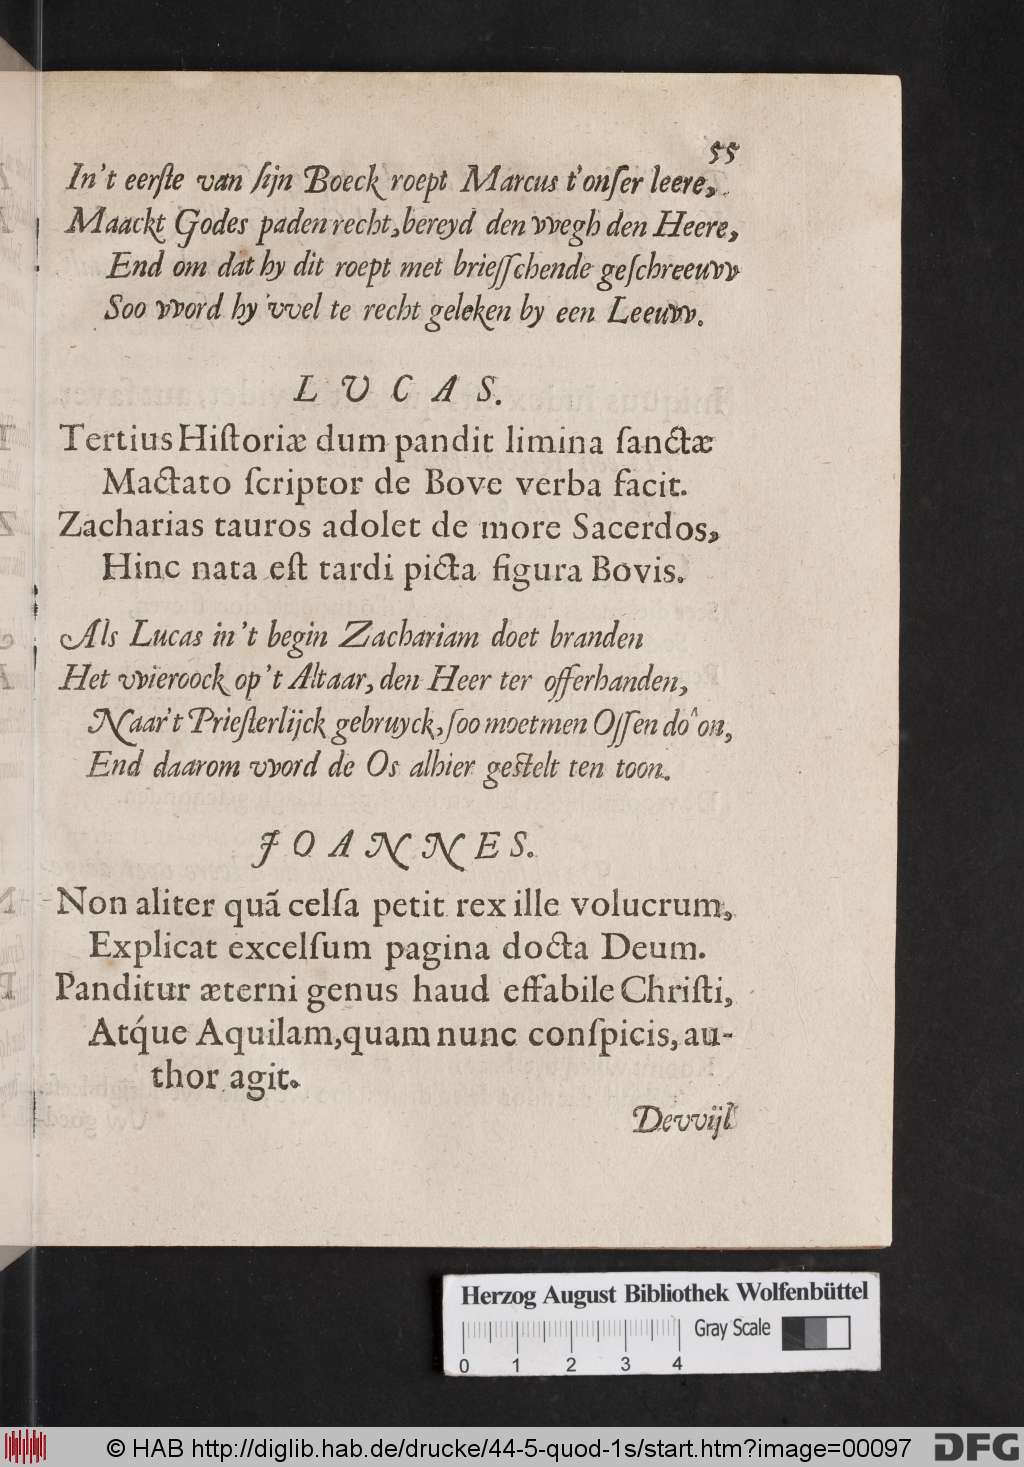 55
In't eerſte van ſijn Boeck roept Marcus t'onſer leere,
Maackt Godes paden recht, bereyd den vvegh den Heere,
End om dat hy dit roept met brieſſchende geſchreeuvv
Soo vvord hy vvel te recht geleken by een Leeuvv.
LVCAS.
Tertius Hiſtoriæ dum pandit limina ſanctæ
Mactato ſcriptor de Bove verba facit.
Zacharias tauros adolet de more Sacerdos,
Hinc nata eſt tardi picta figura Bovis.
Als Lucas in't begin Zachariam doet branden
Het vvieroock op't Altaar, den Heer ter offerhanden,
Naar't Prieſterlijck gebruyck, ſoo moetmen Oſſen do^on,
End daarom vvord de Os alhier geſtelt ten toon.
JOANNES.
Non aliter quã celſa petit rex ille volucrum,
Explicat excelſum pagina docta Deum.
Panditur æterni genus haud effabile Chriſti,
Atq́ue Aquilam, quam nunc conſpicis, au-
thor agit.
Devvijl
Herzog August Bibliothek Wolfenbüttel
Gray Scale
0 1 2 3 4
© HAB http://diglib.hab.de/drucke/44-5-quod-1s/start.htm?image=00097
DFG